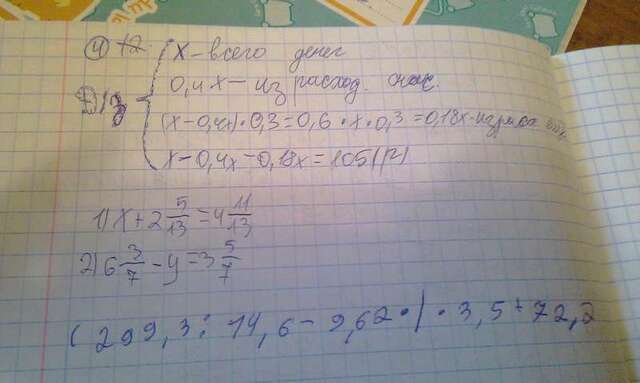 ④ 12. x - всего денег
0,4x - израсход.
(x-0,4x)·0,3=0,6·x·0,3=0,18x-
x-0,4x-0,18x=105(р)
1) x+2 5/13=4 11/13
2) 6 3/7-y=3 5/7
(299,3:14,6-9,62·)·3,5+72,2